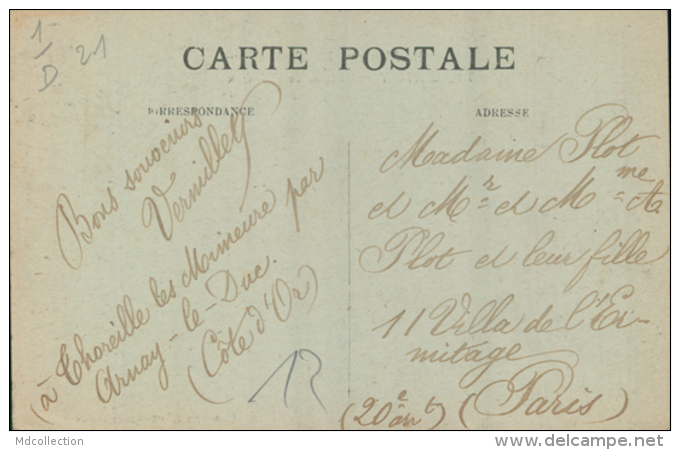 1-
D 21
CARTE POSTALE
CORRESPONDANCE
ADRESSE
Bons souvenirs
Vermillet
(à Thoreille les Mimeure par
Arnay-le-Duc.
(Côte d'Or)
Madame Plot
et Mr et Mme A
Plot et leur fille
11 Villa de l'Er-
mitage
(20e arrt) (Paris)
Mdcollection
www.delcampe.net